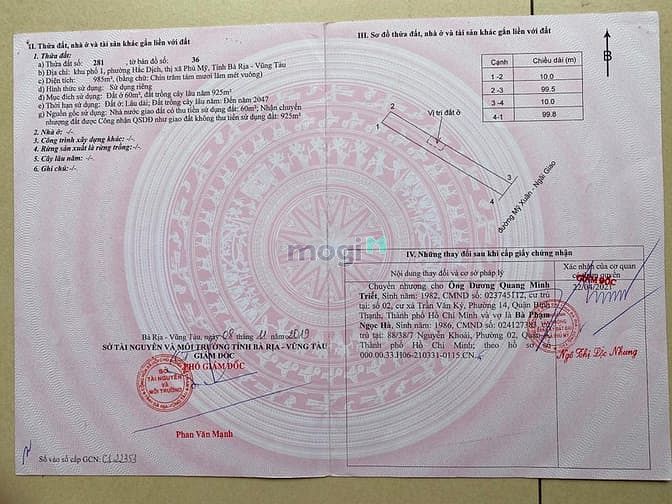 II. Thửa đất, nhà ở và tài sản khác gắn liền với đất
1. Thửa đất:
a) Thửa đất số: 281, tờ bản đồ số: 36
b) Địa chỉ: khu phố 1, phường Hắc Dịch, thị xã Phú Mỹ, Tỉnh Bà Rịa - Vũng Tàu
c) Diện tích: 985m², (bằng chữ: Chín trăm tám mươi lăm mét vuông)
d) Hình thức sử dụng: Sử dụng riêng
đ) Mục đích sử dụng: Đất ở 60m², đất trồng cây lâu năm 925m²
e) Thời hạn sử dụng: Đất ở: Lâu dài; Đất trồng cây lâu năm: Đến năm 2047
g) Nguồn gốc sử dụng: Nhà nước giao đất có thu tiền sử dụng đất: 60m²; Nhận chuyển
nhượng đất được Công nhận QSDĐ như giao đất không thu tiền sử dụng đất: 925m²
2. Nhà ở: -/-
3. Công trình xây dựng khác: -/-
4. Rừng sản xuất là rừng trồng: -/-
5. Cây lâu năm: -/-
6. Ghi chú: -/-
Bà Rịa - Vũng Tàu, ngày 08 tháng 11 năm 2019
SỞ TÀI NGUYÊN VÀ MÔI TRƯỜNG TỈNH BÀ RỊA - VŨNG TÀU
GIÁM ĐỐC
PHÓ GIÁM ĐỐC
SỞ
TÀI NGUYÊN
VÀ
MÔI TRƯỜNG
Phan Văn Mạnh
Số vào sổ cấp GCN: CS 22353
III. Sơ đồ thửa đất, nhà ở và tài sản khác gắn liền với đất
B
Cạnh Chiều dài (m)
1 -2 10.0
2 -3 99.5
3 -4 10.0
4-1 99.8
Vị trí đất ở
2
1
3
4
đường Mỹ Xuân - Ngãi Giao
mogi
IV. Những thay đổi sau khi cấp giấy chứng nhận
Nội dung thay đổi và cơ sở pháp lý
Xác nhận của cơ quan
có thẩm quyền
22/04/2021
GIÁM ĐỐC
Chuyển nhượng cho Ông Dương Quang Minh
Triết, Sinh năm: 1982, CMND số: 023745112, cư trú
tại: số 02, cư xá Trần Văn Ký, Phường 14, Quận Bình
Thạnh, Thành phố Hồ Chí Minh và vợ là Bà Phạm
Ngọc Hà, Sinh năm: 1986, CMND số: cư
trú tại: 88/38/7 Nguyễn Khoái, Phường 02, Quận
Thành phố Hồ Chí Minh; theo hồ sơ số
000.00.33.H06-210331-0115.CN
Ngô Thị Lộc Nhung